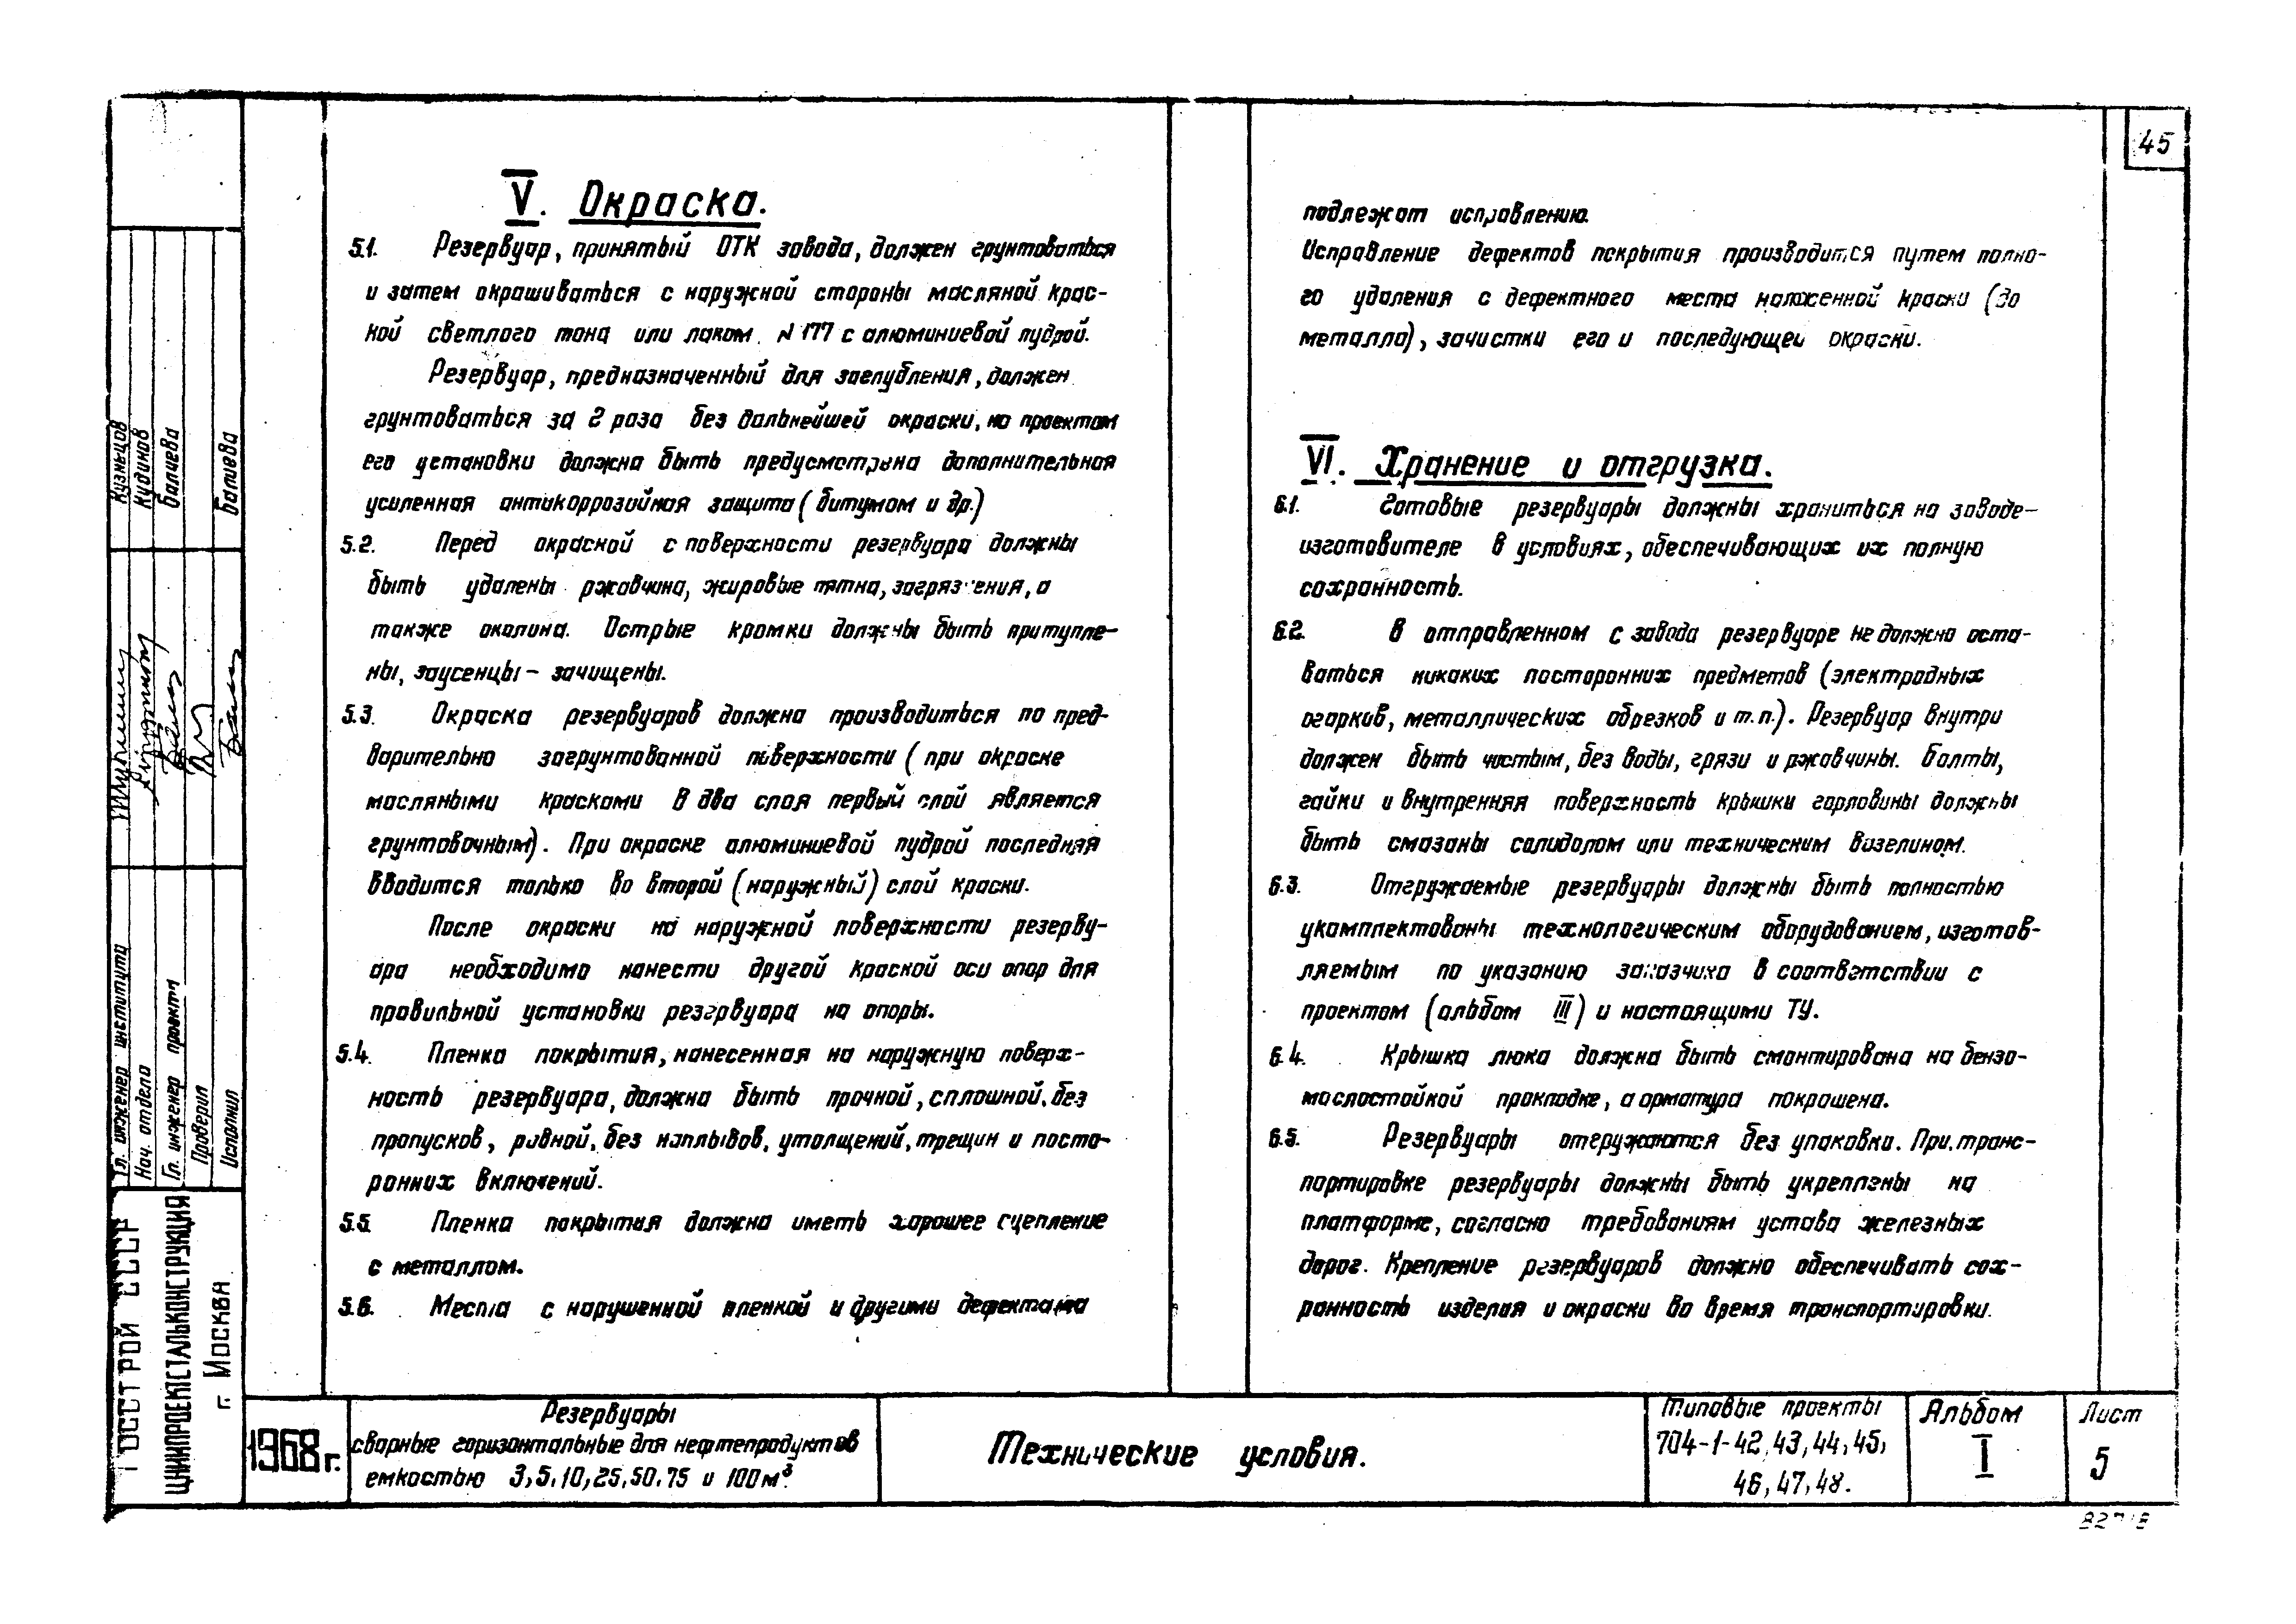 45
V. Окраска.
5.1. Резервуар, принятый ОТК завода, должен грунтоваться
и затем окрашиваться с наружной стороны масляной крас-
кой светлого тона или лаком N 177 с алюминиевой пудрой.
Резервуар, предназначенный для заглубления, должен
грунтоваться за 2 раза без дальнейшей окраски, но проектом
его установки должна быть предусмотрена дополнительная
усиленная антикоррозийная защита (битумом и др.)
5.2. Перед окраской с поверхности резервуара должны
быть удалены ржавчина, жировые пятна, загрязнения, а
также окалина. Острые кромки должны быть притупле-
ны, заусенцы - зачищены.
5.3. Окраска резервуаров должна производиться по пред-
варительно загрунтованной поверхности (при окраске
масляными красками в два слоя первый слой является
грунтовочным). При окраске алюминиевой пудрой последняя
вводится только во второй (наружный) слой краски.
После окраски на наружной поверхности резерву-
ара необходимо нанести другой краской оси опор для
правильной установки резервуара на опоры.
5.4. Пленка покрытия, нанесенная на наружную поверх-
ность резервуара, должна быть прочной, сплошной, без
пропусков, ровной, без наплывов, утолщений, трещин и посто-
ронних включений.
5.5. Пленка покрытия должна иметь хорошее сцепление
с металлом.
5.6. Места с нарушенной пленкой и другими дефектами
подлежат исправлению.
Исправление дефектов покрытия производится путем полно-
го удаления с дефектного места наложенной краски (до
металла), зачистки его и последующей окраски.
VI. Хранение и отгрузка.
6.1. Готовые резервуары должны храниться на заводе-
изготовителе в условиях, обеспечивающих их полную
сохранность.
6.2. В отправленном с завода резервуаре не должно оста-
ваться никаких посторонних предметов (электродных
огарков, металлических обрезков и т.п.). Резервуар внутри
должен быть чистым, без воды, грязи и ржавчины. Болты,
гайки и внутренняя поверхность крышки горловины должны
быть смазаны солидолом или техническим вазелином.
6.3. Отгружаемые резервуары должны быть полностью
укомплектованы технологическим оборудованием, изготов-
ляемым по указанию заказчика в соответствии с
проектом (альбом III) и настоящими ТУ.
6.4. Крышка люка должна быть смонтирована на бензо-
маслостойкой прокладке, а арматура покрашена.
6.5. Резервуары отгружаются без упаковки. При транс-
портировке резервуары должны быть укреплены на
платформе, согласно требованиям устава железных
дорог. Крепление резервуаров должно обеспечивать сох-
ранность изделия и окраски во время транспортировки.
Гл. инженер института Кузнецов
Нач. отдела Кудинов
Гл. инженер проекта Балиева
Проверил
Исполнил Балиева
ГОССТРОЙ СССР
ЦНИИПРОЕКТСТАЛЬКОНСТРУКЦИЯ
г. Москва
1968 г.
Резервуары
сварные горизонтальные для нефтепродуктов
емкостью 3, 5, 10, 25, 50, 75 и 100 м³.
Технические условия.
Типовые проекты
704-1-42, 43, 44, 45,
46, 47, 48.
Альбом
I
Лист
5